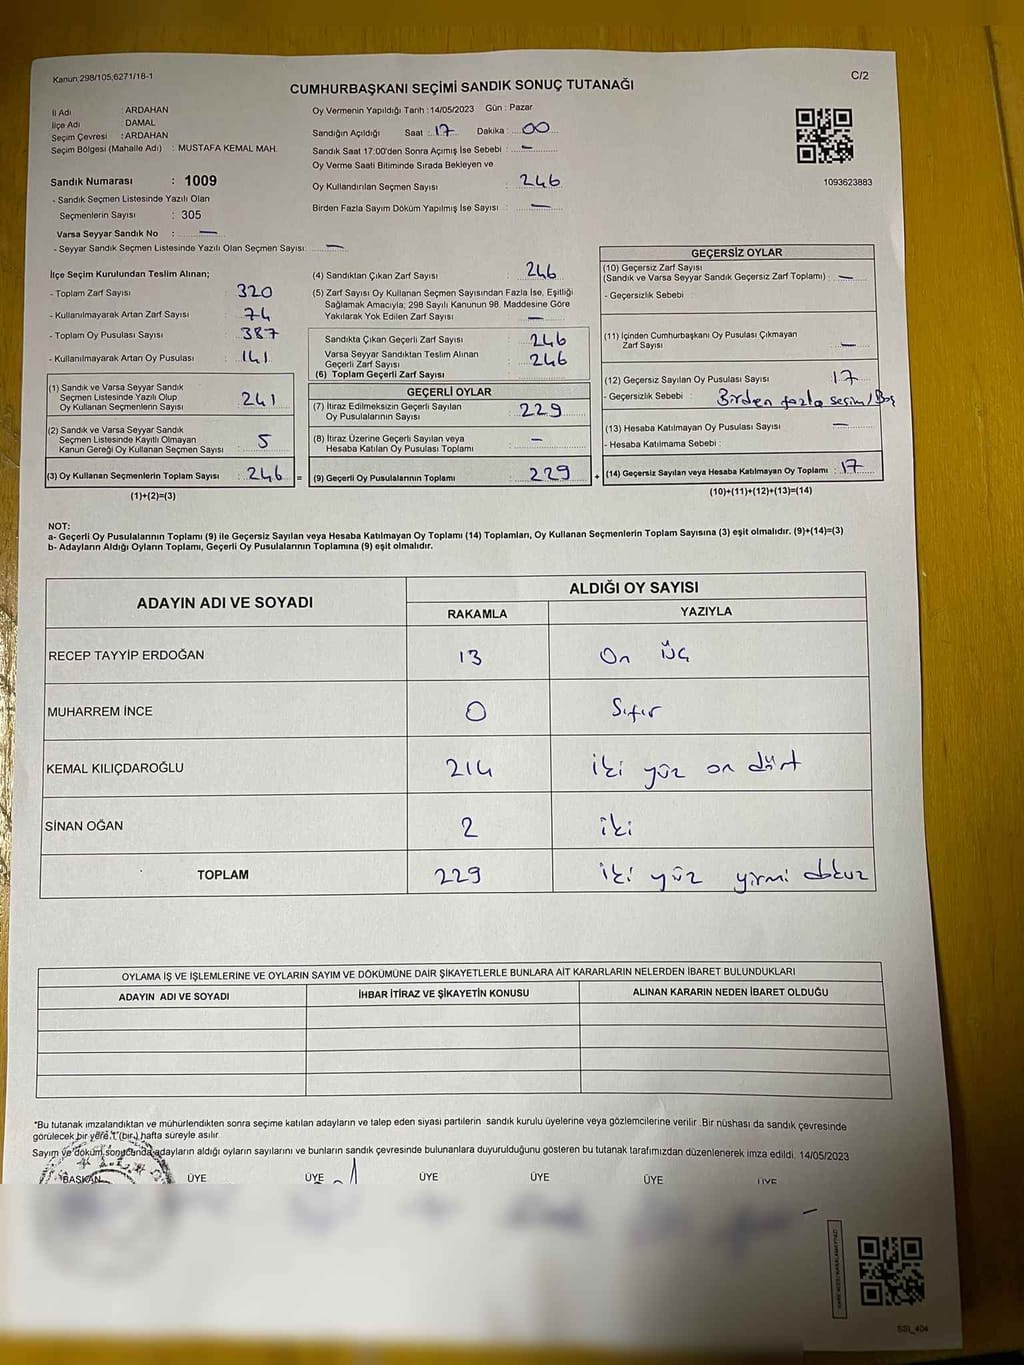 Kanun;298/105;6271/18-1
C/2
CUMHURBAŞKANI SEÇİMİ SANDIK SONUÇ TUTANAĞI
İl Adı : ARDAHAN
İlçe Adı : DAMAL
Seçim Çevresi : ARDAHAN
Seçim Bölgesi (Mahalle Adı) : MUSTAFA KEMAL MAH.
Oy Vermenin Yapıldığı Tarih :14/05/2023 Gün : Pazar
Sandığın Açıldığı Saat : 17 Dakika : 00
Sandık Saat 17:00'den Sonra Açımış İse Sebebi : —
Oy Verme Saati Bitiminde Sırada Bekleyen ve
Oy Kullandırılan Seçmen Sayısı : 246
Birden Fazla Sayım Döküm Yapılmış İse Sayısı : —
1093623883
Sandık Numarası : 1009
- Sandık Seçmen Listesinde Yazılı Olan
Seçmenlerin Sayısı : 305
Varsa Seyyar Sandık No : —
- Seyyar Sandık Seçmen Listesinde Yazılı Olan Seçmen Sayısı: —
İlçe Seçim Kurulundan Teslim Alınan;
- Toplam Zarf Sayısı : 320
- Kullanılmayarak Artan Zarf Sayısı : 74
- Toplam Oy Pusulası Sayısı : 387
- Kullanılmayarak Artan Oy Pusulası : 141
(1) Sandık ve Varsa Seyyar Sandık
Seçmen Listesinde Yazılı Olup
Oy Kullanan Seçmenlerin Sayısı : 241
(2) Sandık ve Varsa Seyyar Sandık
Seçmen Listesinde Kayıtlı Olmayan
Kanun Gereği Oy Kullanan Seçmen Sayısı : 5
(3) Oy Kullanan Seçmenlerin Toplam Sayısı : 246 =
(1)+(2)=(3)
(4) Sandıktan Çıkan Zarf Sayısı : 246
(5) Zarf Sayısı Oy Kullanan Seçmen Sayısından Fazla İse, Eşitliği
Sağlamak Amacıyla; 298 Sayılı Kanunun 98. Maddesine Göre
Yakılarak Yok Edilen Zarf Sayısı : —
Sandıkta Çıkan Geçerli Zarf Sayısı : 246
Varsa Seyyar Sandıktan Teslim Alınan
Geçerli Zarf Sayısı : 246
(6) Toplam Geçerli Zarf Sayısı
GEÇERLİ OYLAR
(7) İtiraz Edilmeksizin Geçerli Sayılan
Oy Pusulalarının Sayısı : 229
(8) İtiraz Üzerine Geçerli Sayılan veya
Hesaba Katılan Oy Pusulası Toplamı : —
(9) Geçerli Oy Pusulalarının Toplamı : 229 +
GEÇERSİZ OYLAR
(10) Geçersiz Zarf Sayısı
(Sandık ve Varsa Seyyar Sandık Geçersiz Zarf Toplamı) : —
- Geçersizlik Sebebi :
(11) İçinden Cumhurbaşkanı Oy Pusulası Çıkmayan
Zarf Sayısı : —
(12) Geçersiz Sayılan Oy Pusulası Sayısı : 17
- Geçersizlik Sebebi : Birden fazla seçim/Boş
(13) Hesaba Katılmayan Oy Pusulası Sayısı : —
- Hesaba Katılmama Sebebi :
(14) Geçersiz Sayılan veya Hesaba Katılmayan Oy Toplamı : 17
(10)+(11)+(12)+(13)=(14)
NOT:
a- Geçerli Oy Pusulalarının Toplamı (9) ile Geçersiz Sayılan veya Hesaba Katılmayan Oy Toplamı (14) Toplamları, Oy Kullanan Seçmenlerin Toplam Sayısına (3) eşit olmalıdır. (9)+(14)=(3)
b- Adayların Aldığı Oyların Toplamı, Geçerli Oy Pusulalarının Toplamına (9) eşit olmalıdır.
ADAYIN ADI VE SOYADI
ALDIĞI OY SAYISI
RAKAMLA YAZIYLA
RECEP TAYYİP ERDOĞAN 13 On üç
MUHARREM İNCE 0 Sıfır
KEMAL KILIÇDAROĞLU 214 iki yüz on dört
SİNAN OĞAN 2 iki
TOPLAM 229 iki yüz yirmi dokuz
OYLAMA İŞ VE İŞLEMLERİNE VE OYLARIN SAYIM VE DÖKÜMÜNE DAİR ŞİKAYETLERLE BUNLARA AİT KARARLARIN NELERDEN İBARET BULUNDUKLARI
ADAYIN ADI VE SOYADI İHBAR İTİRAZ VE ŞİKAYETİN KONUSU ALINAN KARARIN NEDEN İBARET OLDUĞU
*Bu tutanak imzalandıktan ve mühürlendikten sonra seçime katılan adayların ve talep eden siyasi partilerin sandık kurulu üyelerine veya gözlemcilerine verilir .Bir nüshası da sandık çevresinde
görülecek bir yere 1 (bir) hafta süreyle asılır.
Sayım ve döküm sonucunda adayların aldığı oyların sayılarını ve bunların sandık çevresinde bulunanlara duyurulduğunu gösteren bu tutanak tarafımızdan düzenlenerek imza edildi. 14/05/2023
BAŞKAN ÜYE ÜYE ÜYE ÜYE ÜYE ÜYE
SSI_404